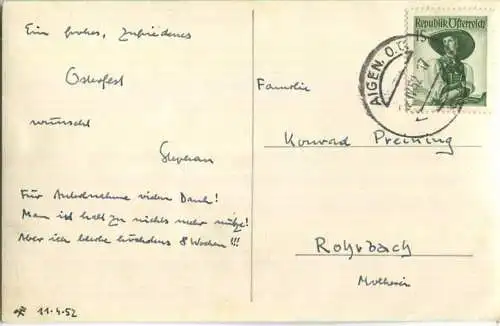 Ein frohes, zufriedenes
Osterfest
wünscht
Für Anteilnahme vielen Dank!
Man ist halt zu nichts mehr nütze!
Aber ich bleibe höchstens 8 Wochen!!!
11.4.52
Republik Österreich
AIGEN. O.Ö
Familie
Konrad Preining
Rohrbach